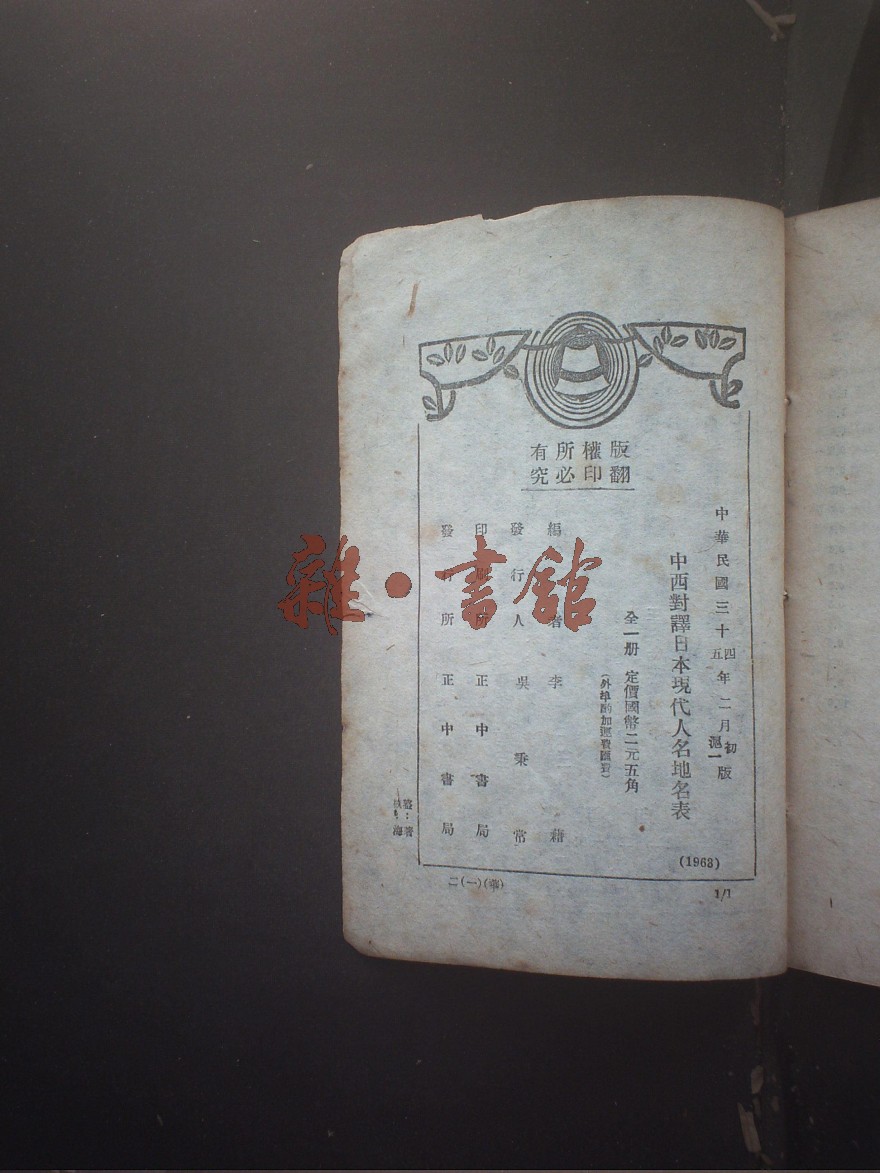 版權所有
翻印必究
中華民國三十四五年二月初滬一版
中西對譯日本現代人名地名表
全一册 定價國幣二元五角
(外埠酌加運費匯費)
編者 李 籍
發行人 吳秉常
印刷所 正中書局
發行所 正中書局
(1963)
二(一)(華)
1/1
雜·書館